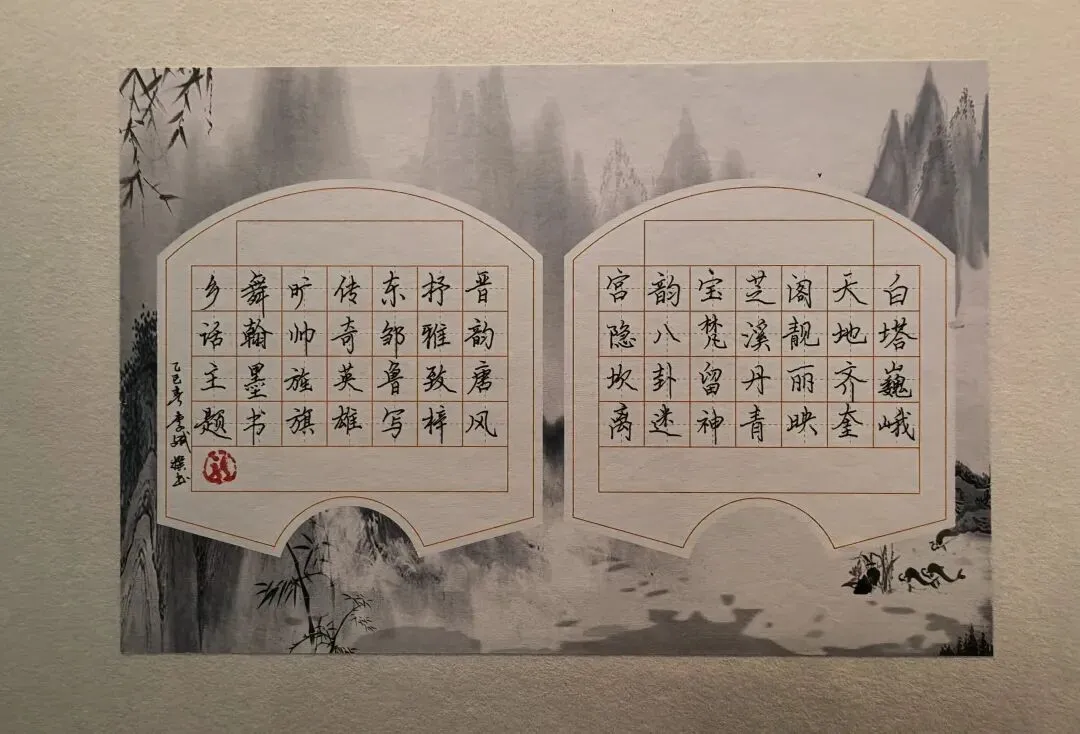 白塔巍峨
天地齐奎
阁靓丽映
芝溪丹青
宝梵留神
韵八卦迷
宫隐坎离
晋韵唐风
抒雅致梓
东邹鲁写
传奇英雄
旷帅旌旗
舞翰墨书
乡话主题
乙巳 李 撰书